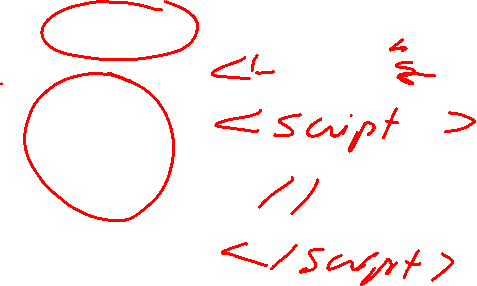 <!-
<script >
//
</script>